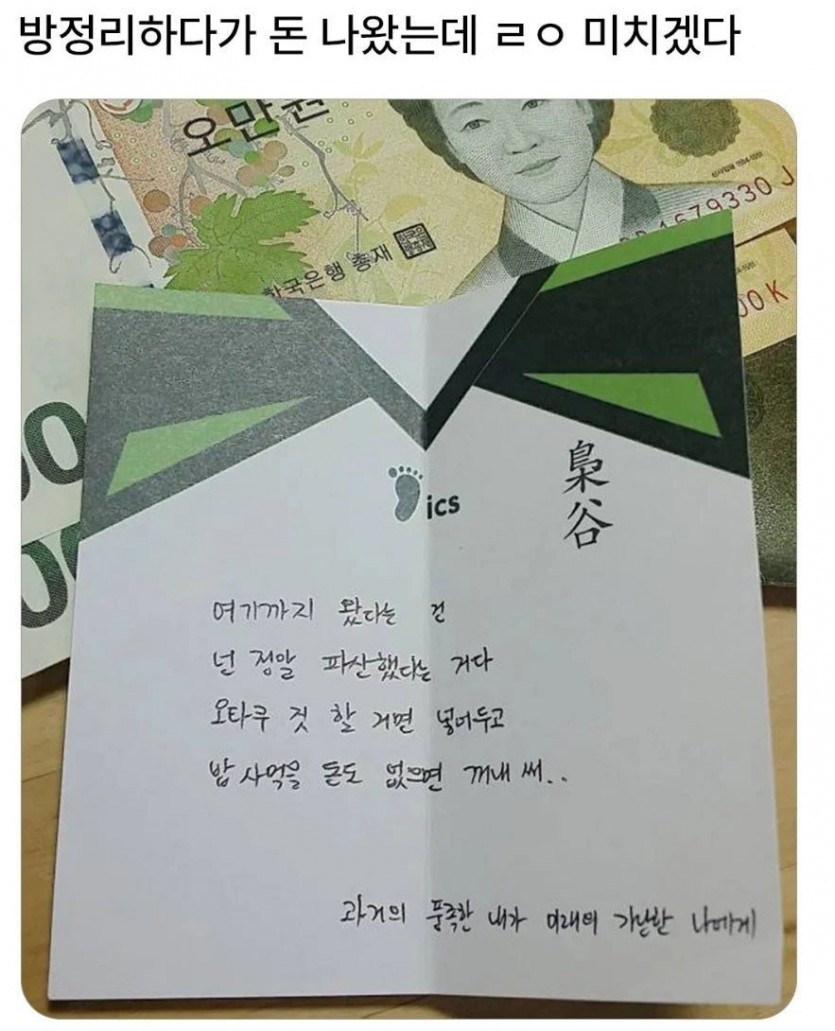 방정리하다가 돈 나왔는데 ㄹㅇ 미치겠다
오만원
한국은행 총재
1679330 J
00 K
00
00
ics
梟谷
여기까지 왔다는 건
넌 정말 파산했다는 거다
오타쿠 것 할 거면 넣어두고
밥 사먹을 돈도 없으면 꺼내 써..
과거의 풍족한 내가 미래의 가난한 나에게